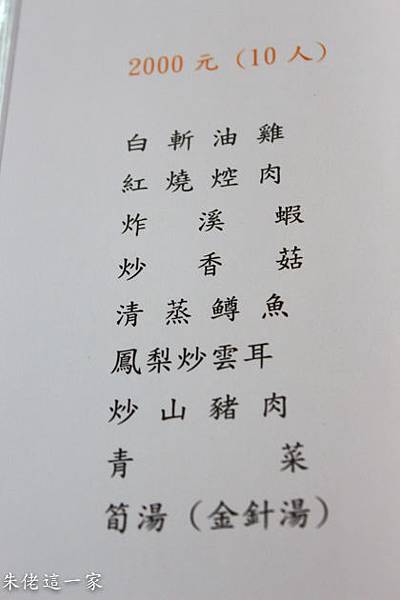 2000 元（10 人）
白斬油雞
紅燒焢肉
炸溪蝦
炒香菇
清蒸鱒魚
鳳梨炒雲耳
炒山豬肉
青菜
筍湯（金針湯）
朱佬這一家